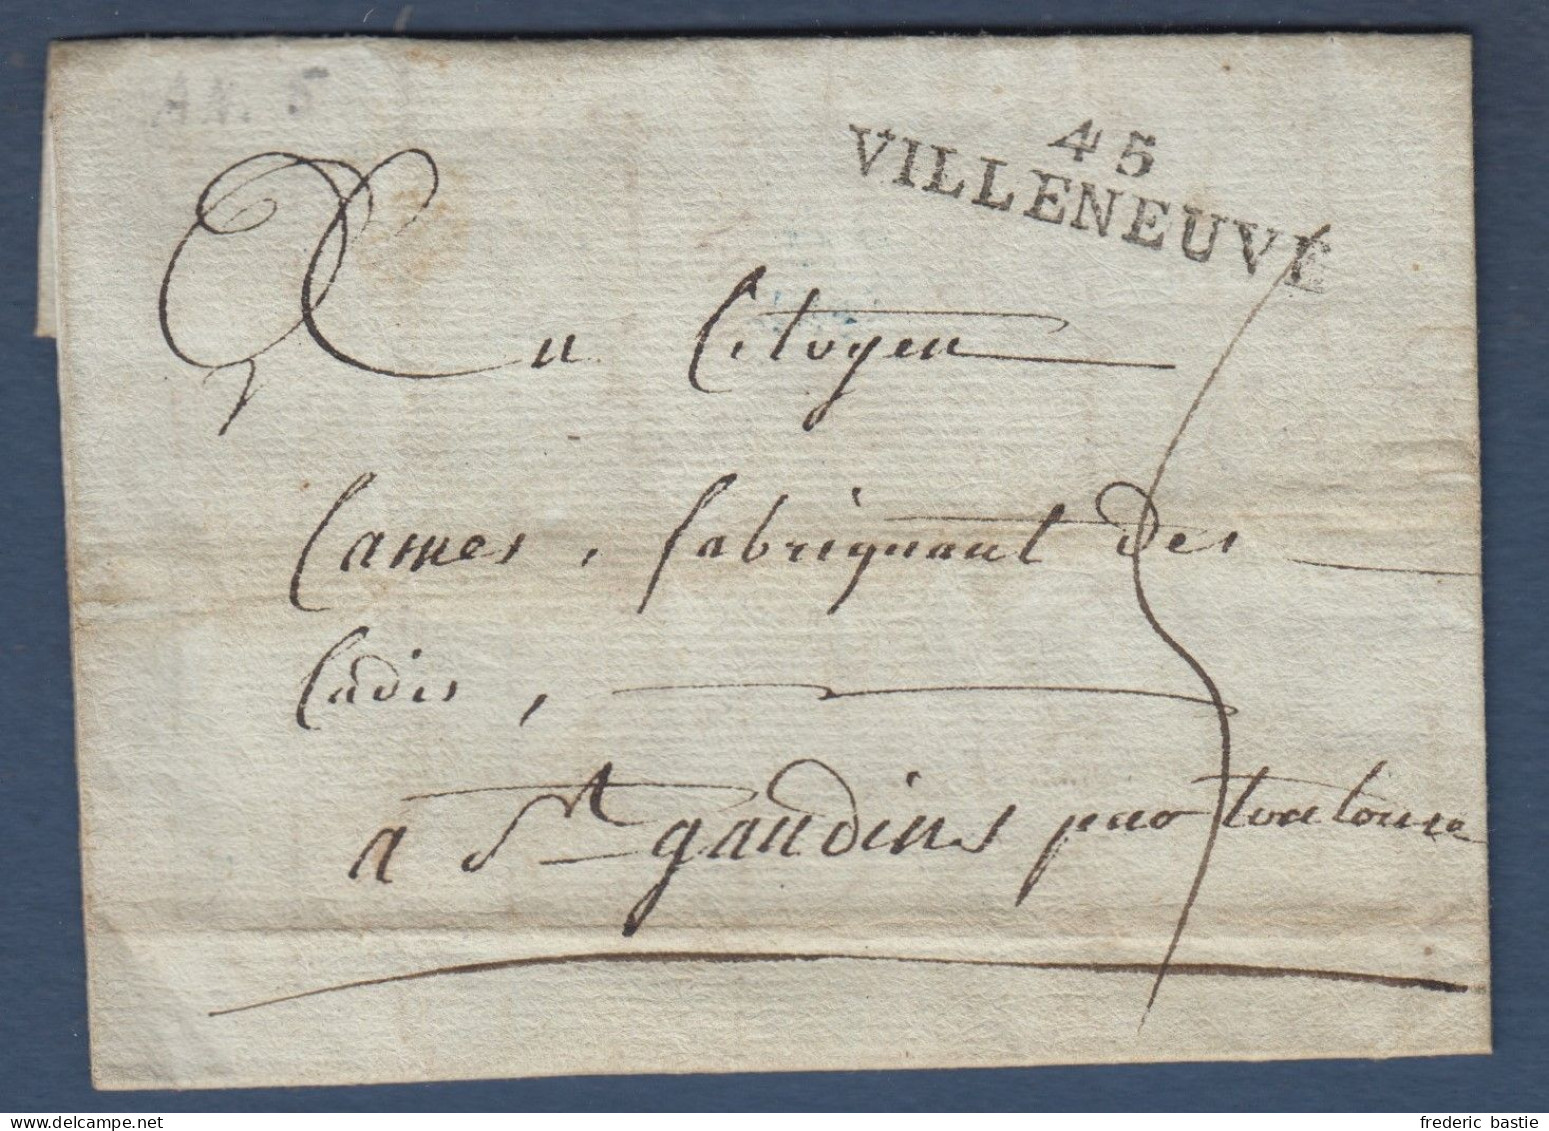 AN. 5
45
VILLENEUVE
Au Citoyen
Cames, fabriquant des
Cadis,
a St gaudins par toulouse
frederic bastie